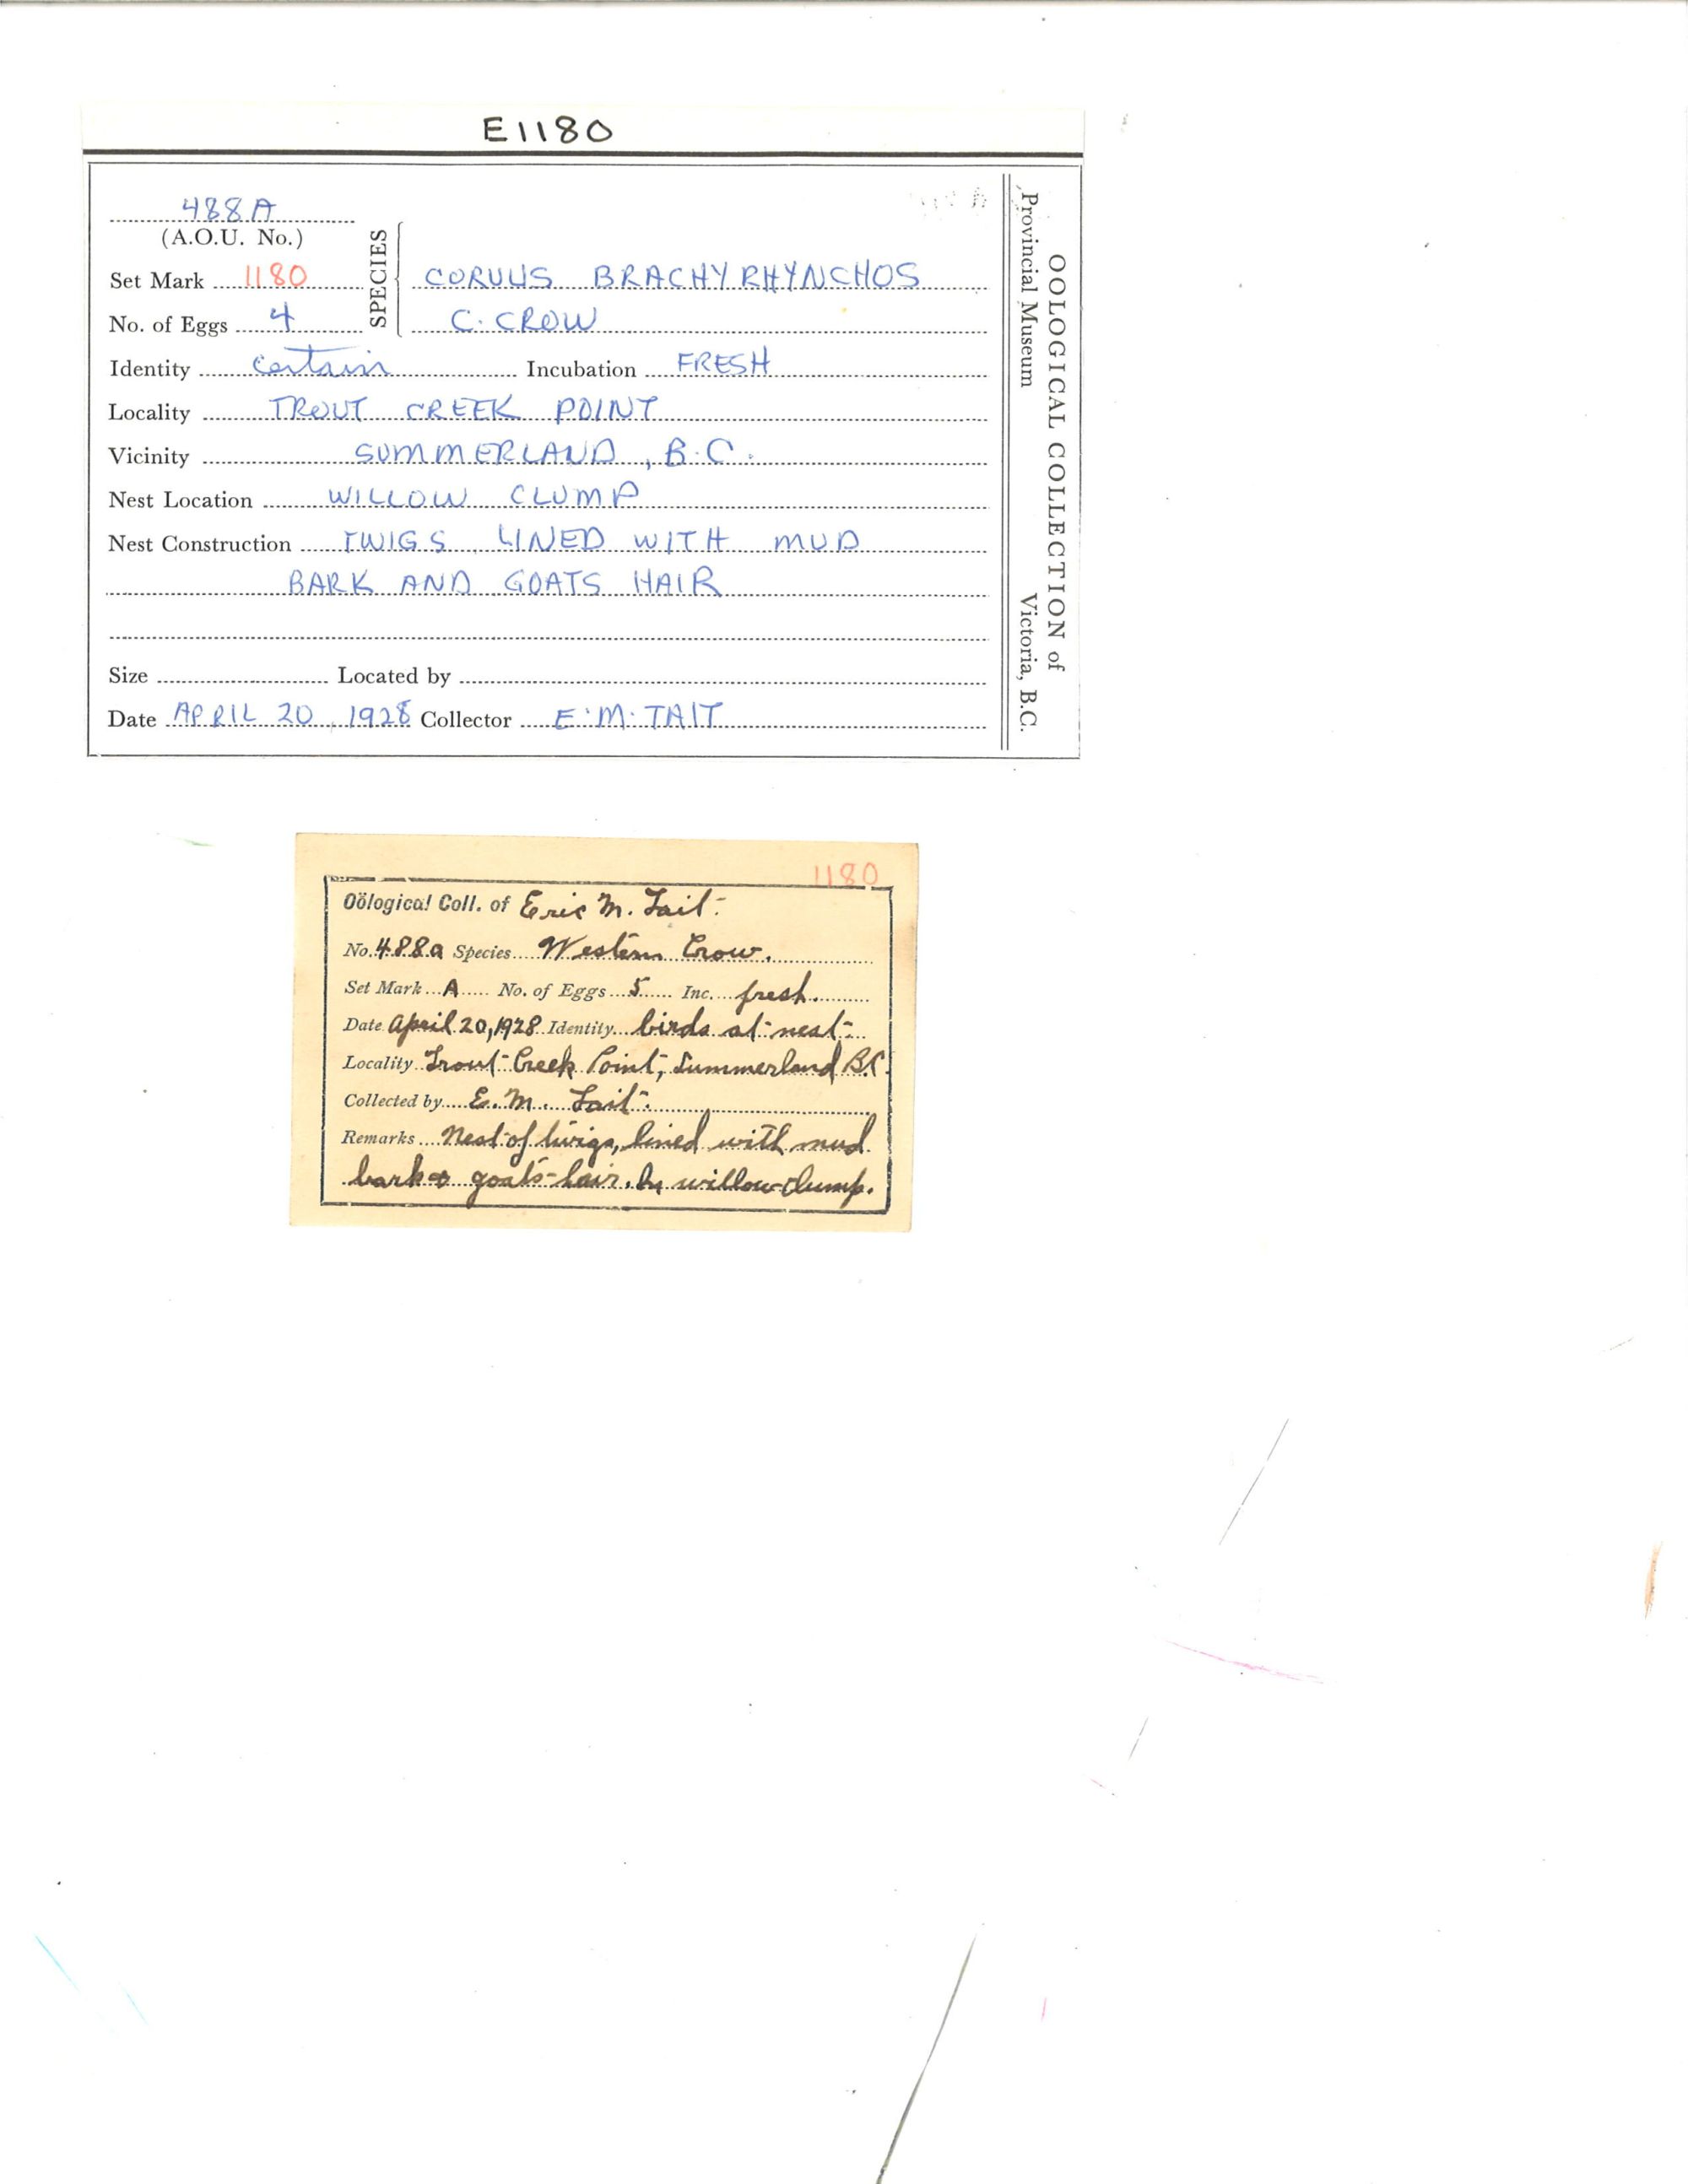 E1180
488A
(A.O.U. No.)
SPECIES
Set Mark 1180 CORVUS BRACHYRHYNCHOS
No. of Eggs 4 C. CROW
Identity certain Incubation FRESH
Locality TROUT CREEK POINT
Vicinity SUMMERLAND, B.C.
Nest Location WILLOW CLUMP
Nest Construction TWIGS LINED WITH MUD
BARK AND GOATS HAIR
Size Located by
Date APRIL 20, 1928 Collector E.M. TAIT
OOLOGICAL COLLECTION of
Provincial Museum Victoria, B.C.
1180
Oölogical Coll. of Eric M. Tait.
No. 488a Species Western Crow.
Set Mark A No. of Eggs 5 Inc. fresh.
Date April 20, 1928 Identity birds at nest.
Locality Trout Creek Point, Summerland B.C.
Collected by E. M. Tait.
Remarks Nest of twigs, lined with mud
bark & goats hair. In willow clump.